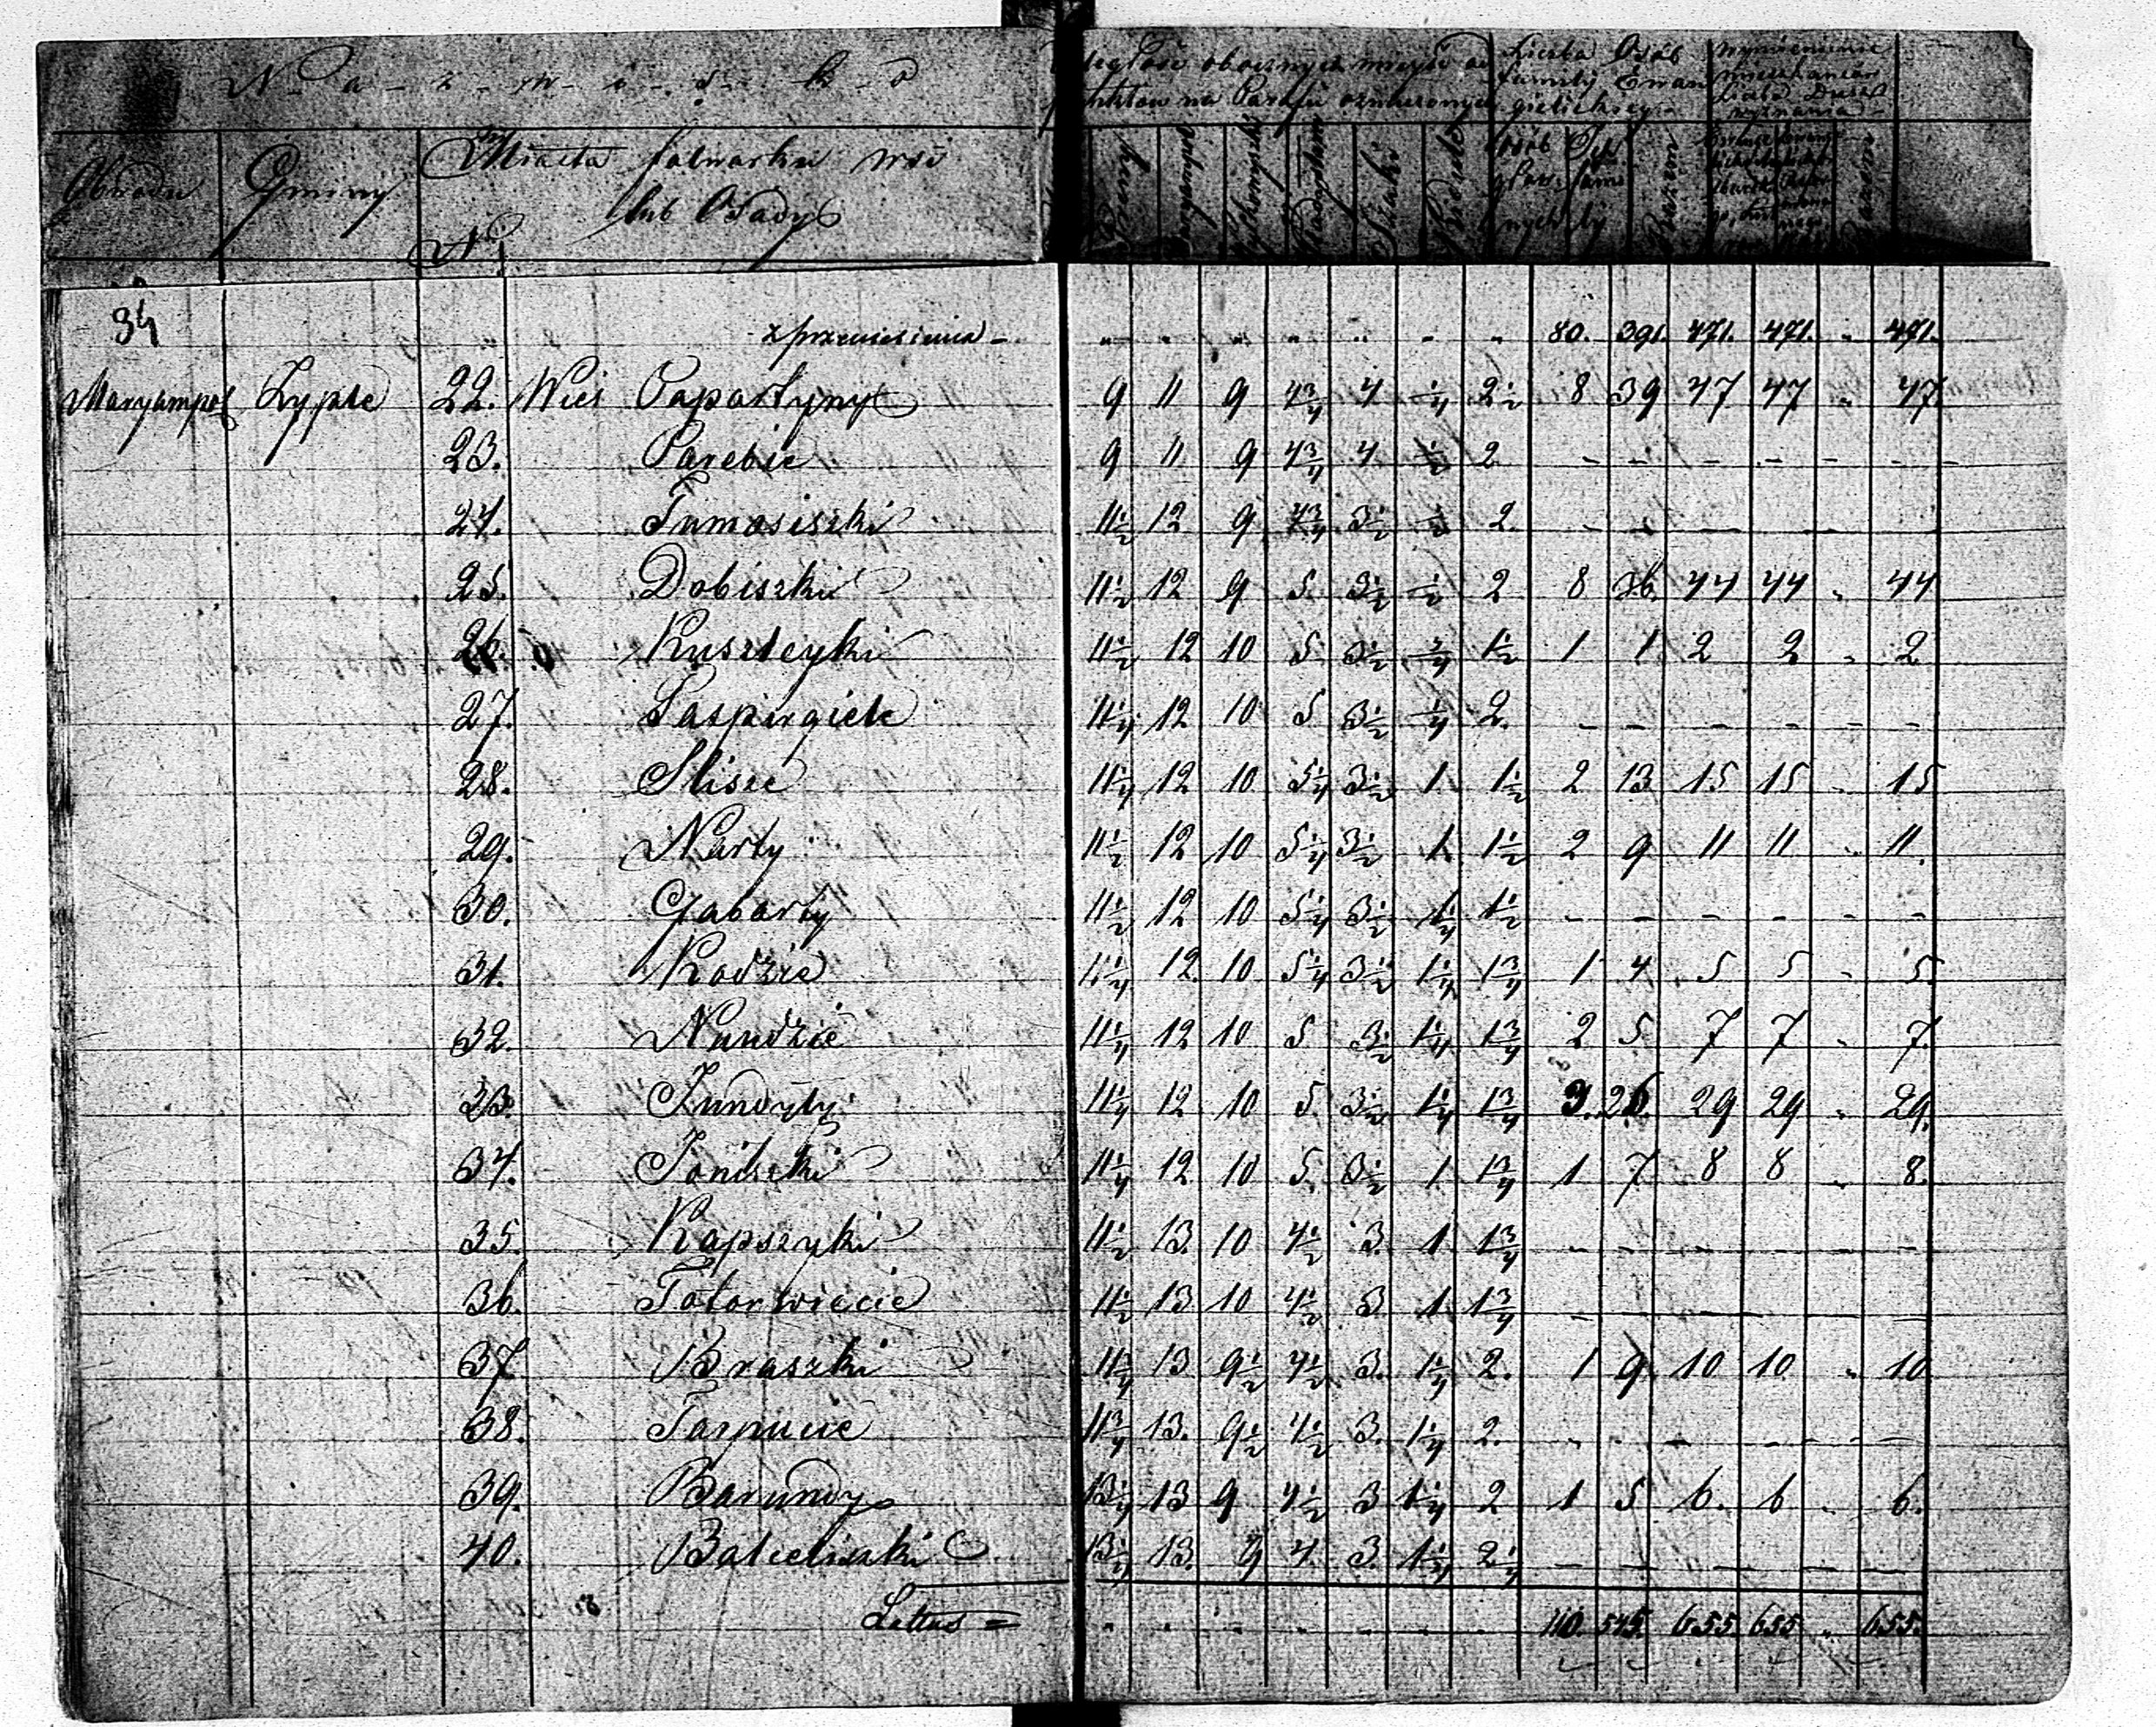 N a z w i s k o
Obwodu Gminy Miasta folwarku wsi
lub Osady
N
obecnych miejsc od
punktów na Parafii oznaczonych
Liczba Osób
familij Ewan
gielickiey
wymienienie
mieszkańców
wyznania
osób Ich
głow fami
nych lij
Razem
Szaki
34 z przeniesienia - " " " " " " " 80. 391. 471. 471. " 471.
Maryampol Zyple 22. Wieś Papartyny 9 11 9 4¾ 4 ¼ 2½ 8 39 47 47 " 47
23. Parebie 9 11 9 4¾ 4 ½ 2 - - - - - -
24. Tumosiszki 11½ 12 9 4¾ 3½ ½ 2 - - - - - -
25. Dobiszki 11½ 12 9 5 3½ ½ 2 8 36 44 44 " 44
26. Kuszleyki 11½ 12 10 5 3½ ¾ 1½ 1 1 2 2 " 2
27. Paspirgiele 11¼ 12 10 5 3½ ¼ 2. - - - - - -
28. Slisze 11¼ 12 10 5¼ 3½ 1 1½ 2 13 15 15 " 15
29. Narty 11½ 12 10 5¼ 3½ 1 1½ 2 9 11 11 " 11.
30. Gabarty 11½ 12 10 5¼ 3½ 1¼ 1½ - - - - - -
31. Rodzie 11¼ 12 10 5¼ 3½ 1¼ 1¾ 1 4 5 5 " 5.
32. Naudzie 11¼ 12 10 5 3½ 1¼ 1¾ 2 5 7 7 " 7.
33. Jundyły 11¼ 12 10 5. 3½ 1¼ 1¾ 3. 26. 29 29 " 29.
34. Joniszki 11¼ 12 10 5. 3½ 1 1¾ 1 7 8 8 " 8.
35. Kapszyki 11½ 13. 10 4½ 3. 1 1¾ - - - - - -
36. Totorwiecie 11½ 13 10 4½ 3 1 1¾ - - - - - -
37. Braszki 11¾ 13 9½ 4½ 3. 1¼ 2. 1 9 10 10 " 10
38. Tarpucie 11¾ 13. 9½ 4½ 3. 1¼ 2. - - - - - -
39. Barundy 13¼ 13 9 4½ 3 1¼ 2 1 5 6. 6 " 6.
40. Baltieliszki 13¼ 13. 9 4. 3. 1¼ 2¼ - - - - - -
Lattus = " " " " " " " 110. 545. 655 655 " 655.